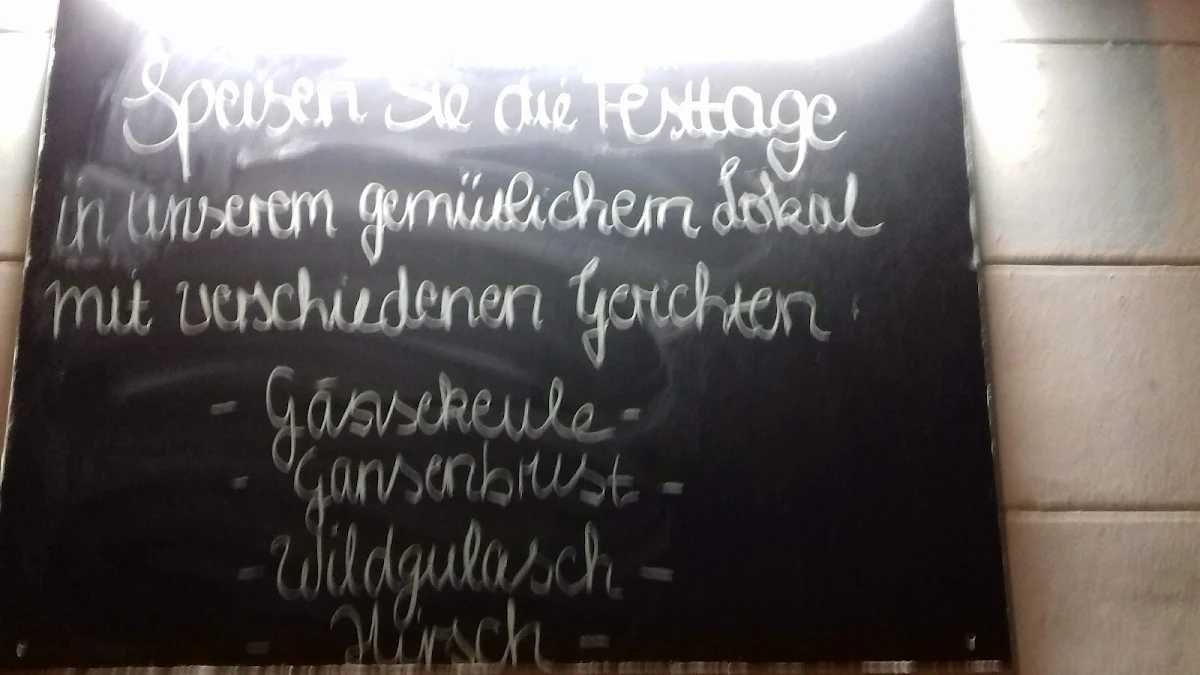 Speisen Sie die Festtage
in unserem gemütlichem Lokal
mit verschiedenen Gerichten
- Gänsekeule -
- Gänsenbrust -
- Wildgulasch -
- Hirsch -